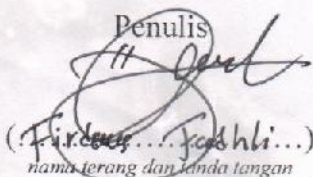 Penulis
(...Firdaus....Fashli...)
nama terang dan tanda tangan